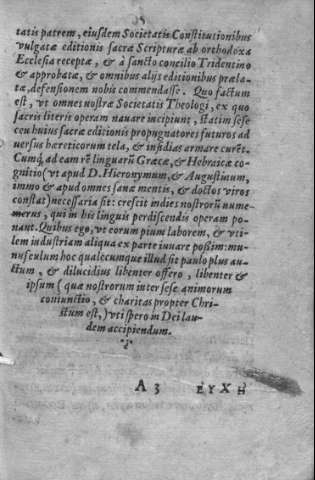 tatis patrem, eiusdem Societatis Constitutionibus
vulgatæ editionis sacræ Scripturæ ab orthodoxa
Ecclesia receptæ, & à sancto concilio Tridentino
& approbatæ, & omnibus alijs editionibus præla-
tæ, defensionem nobis commendasse. Quo factum
est, vt omnes nostræ Societatis Theologi, ex quo
sacris literis operam nauare incipiunt, statim sese
ceu huius sacræ editionis propugnatores futuros ad
uersus hæreticorum tela, & insidias armare curẽt.
Cumq; ad eam rẽ linguarũ Græcæ, & Hebraicæ co-
gnitio (vt apud D. Hieronymum, & Augustinum,
immo & apud omnes sanæ mentis, & doctos viros
constat) necessaria sit: crescit indies nostrorũ nume-
merus, qui in his linguis perdiscendis operam po-
nant. Quibus ego, vt eorum pium laborem, & vti-
lem industriam aliqua ex parte iuuare possim: mu-
nusculum hoc qualecumque illud sit paulo plus au-
ctum, & dilucidius libenter offero, libenter &
ipsum (quæ nostrorum inter sese animorum
coniunctio, & charitas propter Chri-
stum est,) vti spero in Dei lau-
dem accipiendum.
A 3 ΕΥΧΗ